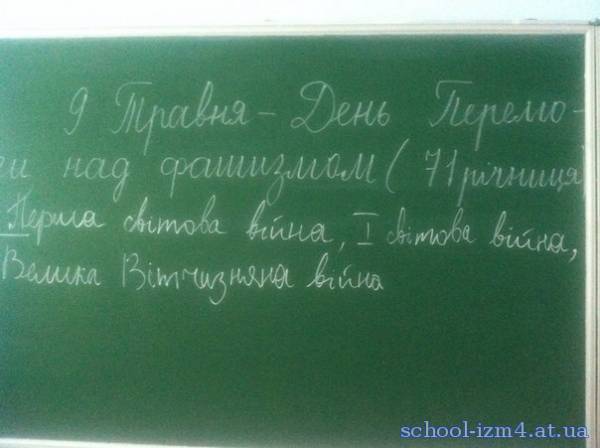 9 Травня - День Перемо-
ги над фашизмом (71 річниця
Перша світова війна, І світова війна,
Велика Вітчизняна війна
school-izm4.at.ua